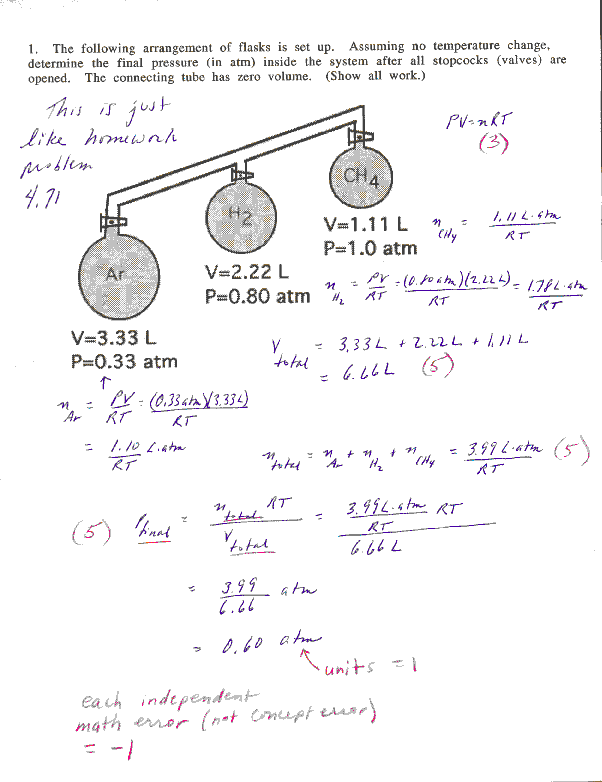 1. The following arrangement of flasks is set up. Assuming no temperature change,
determine the final pressure (in atm) inside the system after all stopcocks (valves) are
opened. The connecting tube has zero volume. (Show all work.)
This is just
like homework
problem
4.71
PV=nRT
(3)
CH4
V=1.11 L
P=1.0 atm
n CH4 = 1.11 L·atm / RT
H2
V=2.22 L
P=0.80 atm
n H2 = PV / RT = (0.80 atm)(2.22 L) / RT = 1.78 L·atm / RT
Ar
V=3.33 L
P=0.33 atm
↑
V total = 3.33 L + 2.22 L + 1.11 L
= 6.66 L (5)
n Ar = PV / RT = (0.33 atm)(3.33 L) / RT
= 1.10 L·atm / RT
n total = n Ar + n H2 + n CH4 = 3.99 L·atm / RT (5)
(5) P final = n total RT / V total = 3.99 L·atm RT / RT / 6.66 L
= 3.99 / 6.66 atm
= 0.60 atm
units = 1
each independent
math error (not concept error)
= -1